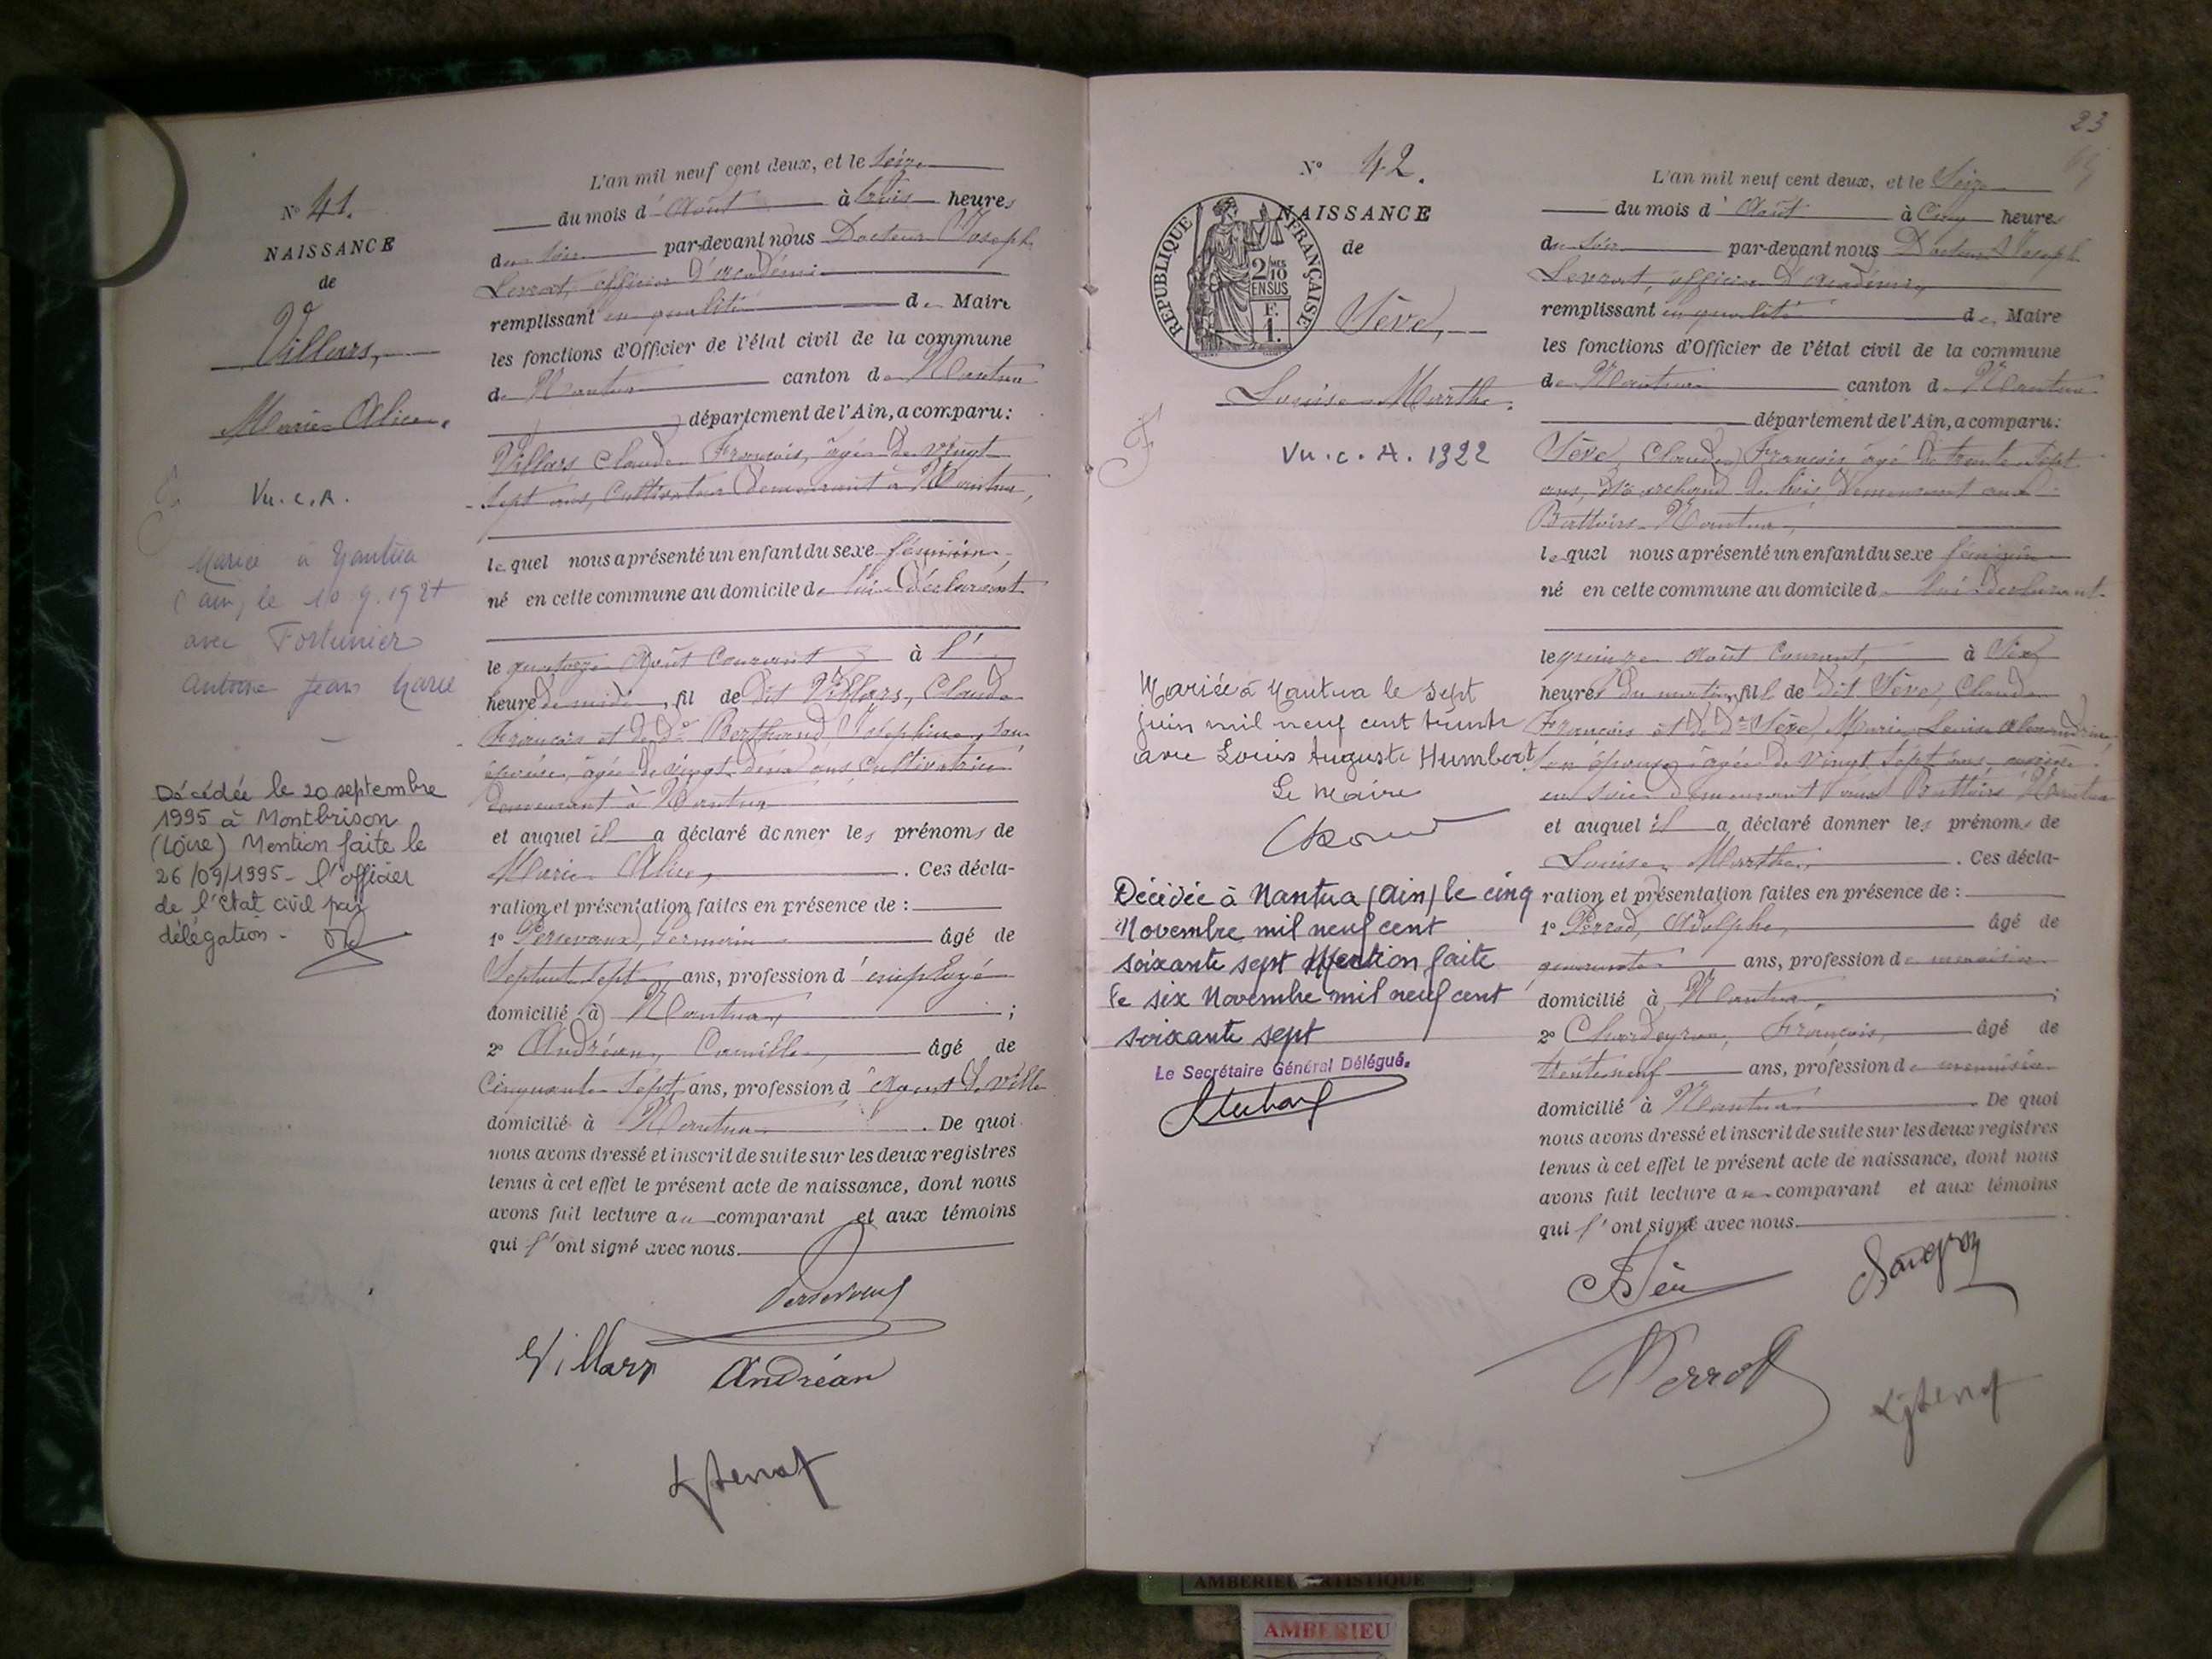 Nº 41.
NAISSANCE
de
Villars,
Marie Alice.
Vu. c. A.
Mariée à Nantua
(Ain) le 10.9.192
avec Fortunier
Antoine Jean Marie
Décédée le 20 septembre
1995 à Montbrison
(Loire) Mention faite le
26/09/1995 - l'officier
de l'état civil par
délégation -
L'an mil neuf cent deux, et le Seize
du mois d'Août à trois heures
du soir par-devant nous Docteur Joseph
Levrat, officier d'académie
remplissant en qualité de Maire
les fonctions d'Officier de l'état civil de la commune
de Nantua canton de Nantua
département de l'Ain, a comparu:
Villars Claude François, âgé de vingt
sept ans, Cultivateur demeurant à Nantua,
lequel nous a présenté un enfant du sexe féminin
né en cette commune au domicile de lui déclarant
le quatorze Août Courant à l'
heure de midi, fil de dit Villars, Claude
François et de de Berthand Joséphine, son
épouse, âgée de vingt deux ans, Cultivatrice
demeurant à Nantua
et auquel il a déclaré donner les prénoms de
Marie Alice, . Ces décla-
ration et présentation failes en présence de :
1º Persevaux, Germain âgé de
Septante sept ans, profession d'employé
domicilié à Nantua, ;
2º Andréan, Camille, âgé de
Cinquante Sept ans, profession d'agent de ville
domicilié à Nantua . De quoi
nous avons dressé et inscrit de suite sur les deux registres
tenus à cet effet le présent acte de naissance, dont nous
avons fait lecture au comparant et aux témoins
qui l'ont signé avec nous.
Villars Andréan
23
Nº 42.
NAISSANCE
de
RÉPUBLIQUE FRANÇAISE
2 MES
10
EN SUS
F.
1.
Sève,
Louise Marthe.
Vu. c. A. 1922
Mariée à Nantua le sept
juin mil neuf cent trente
avec Louis Auguste Humbert
Le Maire
Décédée à Nantua (Ain) le cinq
Novembre mil neuf cent
soixante sept Mention faite
le six Novembre mil neuf cent
soixante sept
Le Secrétaire Général Délégué.
L'an mil neuf cent deux, et le Seize
du mois d'Août à Cinq heures
du soir par-devant nous Docteur Joseph
Levrat, officier d'académie,
remplissant en qualité de Maire
les fonctions d'Officier de l'état civil de la commune
de Nantua canton de Nantua
département de l'Ain, a comparu:
Sève, Claude François âgé de trente sept
ans, Marchand de bois demeurant aux
Battoirs Nantua,
lequel nous a présenté un enfant du sexe féminin
né en cette commune au domicile de lui déclarant
le quinze Août Courant, à Six
heures du matin, fil de dit Sève, Claude
François et de De Sève, Marie Louise Alexandrine
son épouse, âgée de vingt sept ans,
demeurant aux Battoirs Nantua
et auquel il a déclaré donner les prénoms de
Louise Marthe, . Ces décla-
ration et présentation failes en présence de :
1º Perrod, Adolphe, âgé de
quarante ans, profession de menuisier
domicilié à Nantua, ;
2º François, âgé de
trente neuf ans, profession de menuisier
domicilié à Nantua . De quoi
nous avons dressé et inscrit de suite sur les deux registres
tenus à cet effet le présent acte de naissance, dont nous
avons fait lecture au comparant et aux témoins
qui l'ont signé avec nous.
Perrod
AMBERIEU ARTISTIQUE
AMBERIEU